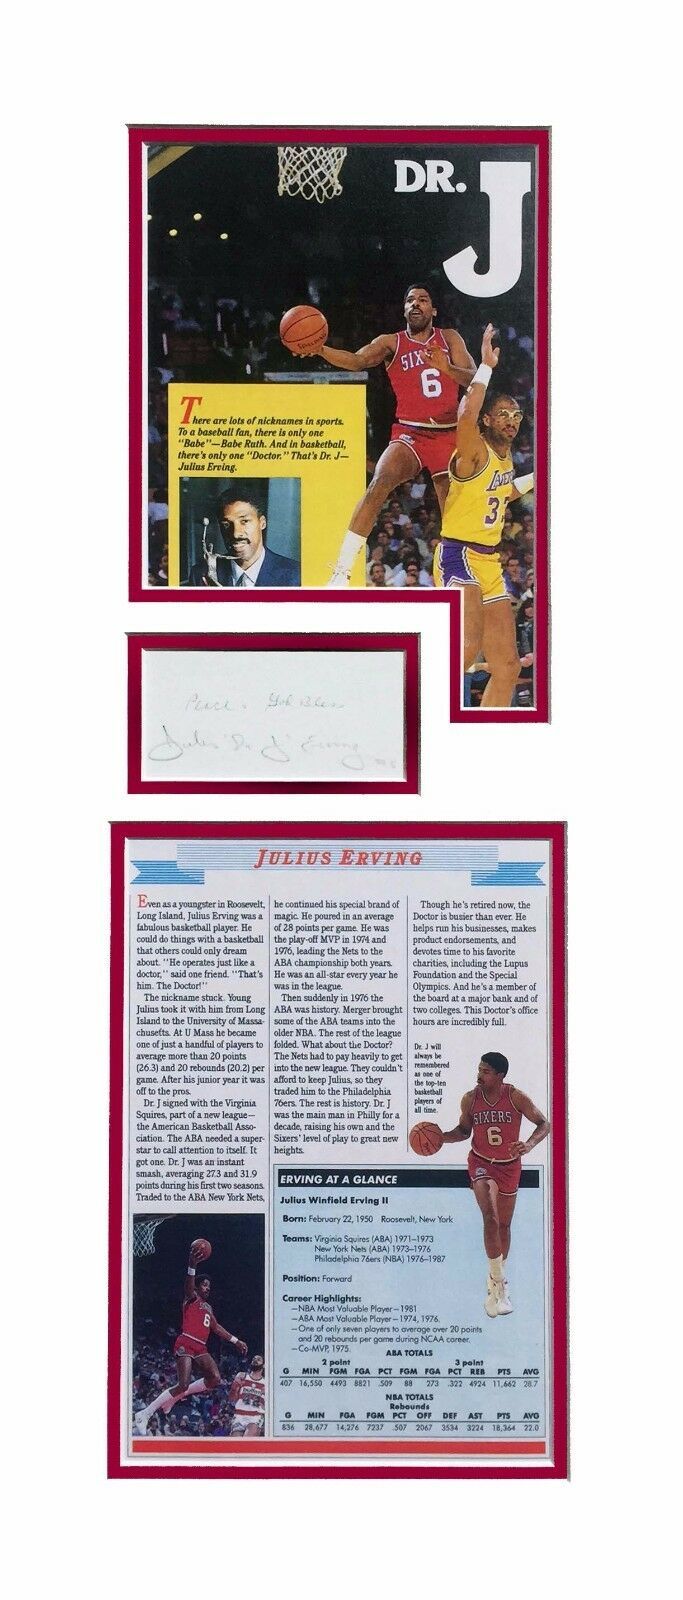 DR.
J
SPALDING
SIXERS
6
There are lots of nicknames in sports.
To a baseball fan, there is only one
"Babe"—Babe Ruth. And in basketball,
there's only one "Doctor." That's Dr. J—
Julius Erving.
Peace & God Bless
Julius "Dr. J" Erving
JULIUS ERVING
Even as a youngster in Roosevelt,
Long Island, Julius Erving was a
fabulous basketball player. He
could do things with a basketball
that others could only dream
about. "He operates just like a
doctor," said one friend. "That's
him. The Doctor!"
The nickname stuck. Young
Julius took it with him from Long
Island to the University of Massa-
chusetts. At U Mass he became
one of just a handful of players to
average more than 20 points
(26.3) and 20 rebounds (20.2) per
game. After his junior year it was
off to the pros.
Dr. J signed with the Virginia
Squires, part of a new league—
the American Basketball Asso-
ciation. The ABA needed a super-
star to call attention to itself. It
got one. Dr. J was an instant
smash, averaging 27.3 and 31.9
points during his first two seasons.
Traded to the ABA New York Nets,
he continued his special brand of
magic. He poured in an average
of 28 points per game. He was
the play-off MVP in 1974 and
1976, leading the Nets to the
ABA championship both years.
He was an all-star every year he
was in the league.
Then suddenly in 1976 the
ABA was history. Merger brought
some of the ABA teams into the
older NBA. The rest of the league
folded. What about the Doctor?
The Nets had to pay heavily to get
into the new league. They couldn't
afford to keep Julius, so they
traded him to the Philadelphia
76ers. The rest is history. Dr. J
was the main man in Philly for a
decade, raising his own and the
Sixers' level of play to great new
heights.
Though he's retired now, the
Doctor is busier than ever. He
helps run his businesses, makes
product endorsements, and
devotes time to his favorite
charities, including the Lupus
Foundation and the Special
Olympics. And he's a member of
the board at a major bank and of
two colleges. This Doctor's office
hours are incredibly full.
Dr. J will
always be
remembered
as one of
the top-ten
basketball
players of
all time.
SIXERS
6
6
ERVING AT A GLANCE
Julius Winfield Erving II
Born: February 22, 1950 Roosevelt, New York
Teams: Virginia Squires (ABA) 1971–1973
New York Nets (ABA) 1973–1976
Philadelphia 76ers (NBA) 1976–1987
Position: Forward
Career Highlights:
—NBA Most Valuable Player—1981
—ABA Most Valuable Player—1974, 1976.
—One of only seven players to average over 20 points
and 20 rebounds per game during NCAA career.
—Co-MVP, 1975.
ABA TOTALS
2 point 3 point
G MIN FGM FGA PCT FGM FGA PCT REB PTS AVG
407 16,550 4493 8821 .509 88 273 .322 4924 11,662 28.7
NBA TOTALS
Rebounds
G MIN FGA FGM PCT OFF DEF AST PTS AVG
836 28,677 14,276 7237 .507 2067 3534 3224 18,364 22.0